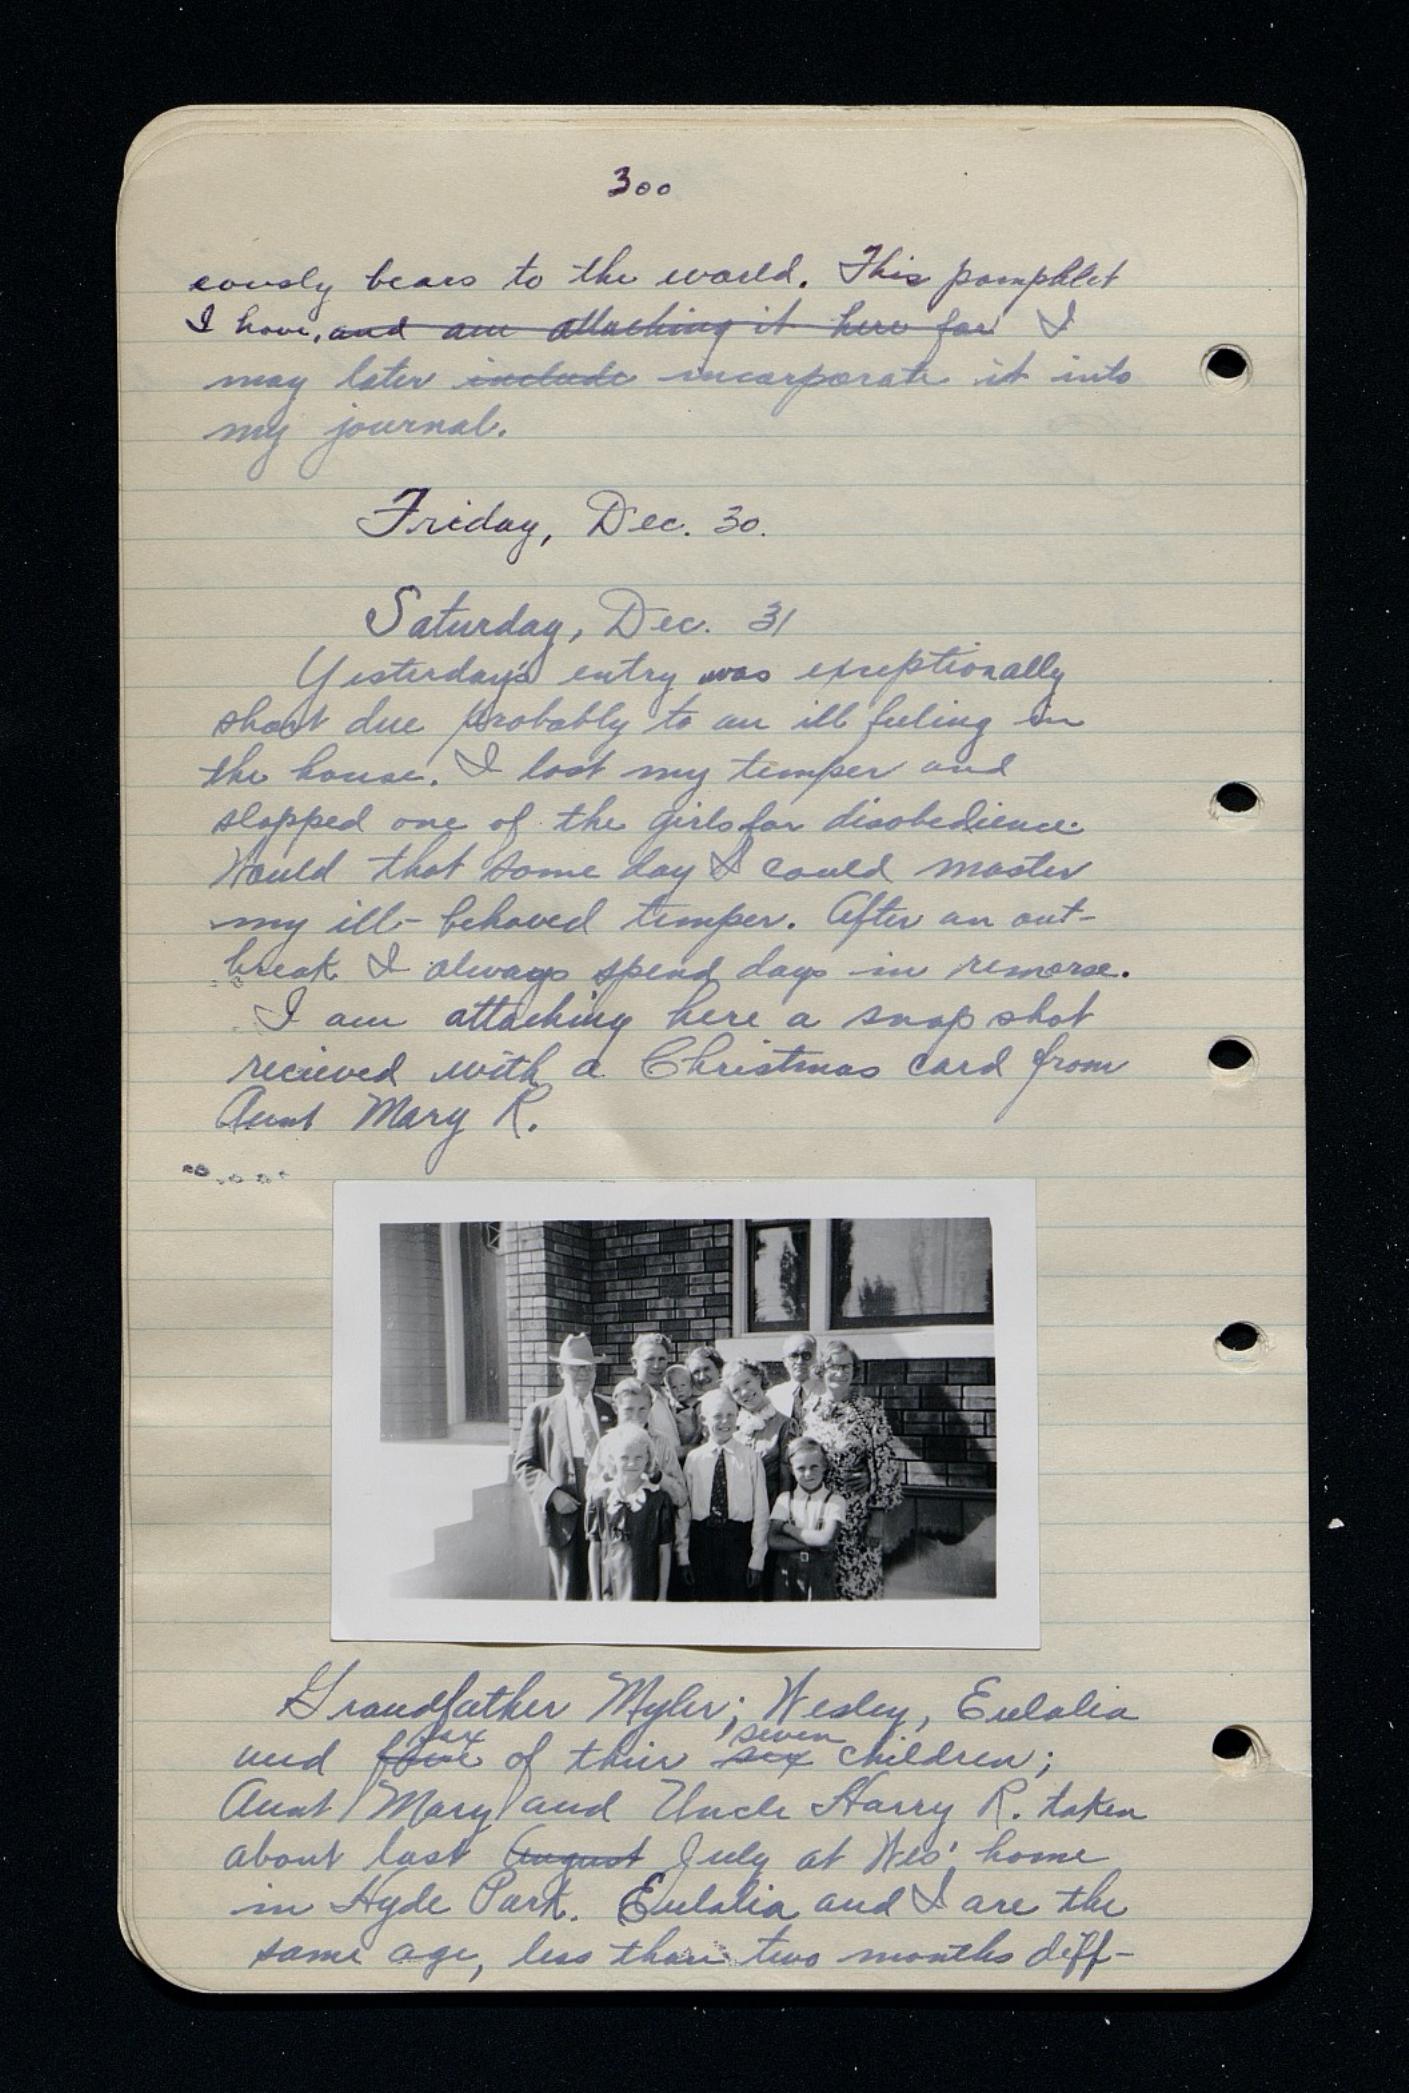 300
eously bears to the world. This pamphlet
I have, and am attaching it here for I
may later include incorporate it into
my journal.
Friday, Dec. 30.
Saturday, Dec. 31
Yesterday's entry was exceptionally
short due probably to an ill feeling in
the house. I lost my temper and
slapped one of the girls for disobedience.
Would that some day I could master
my ill-behaved temper. After an out-
break I always spend days in remorse.
I am attaching here a snap shot
recieved with a Christmas card from
Aunt Mary R.
Grandfather Myler; Wesley, Eulalia
six seven
and of their six children;
Aunt Mary and Uncle Harry R. taken
about last August July at Wes' home
in Hyde Park. Eulalia and I are the
same age, less than two months diff-